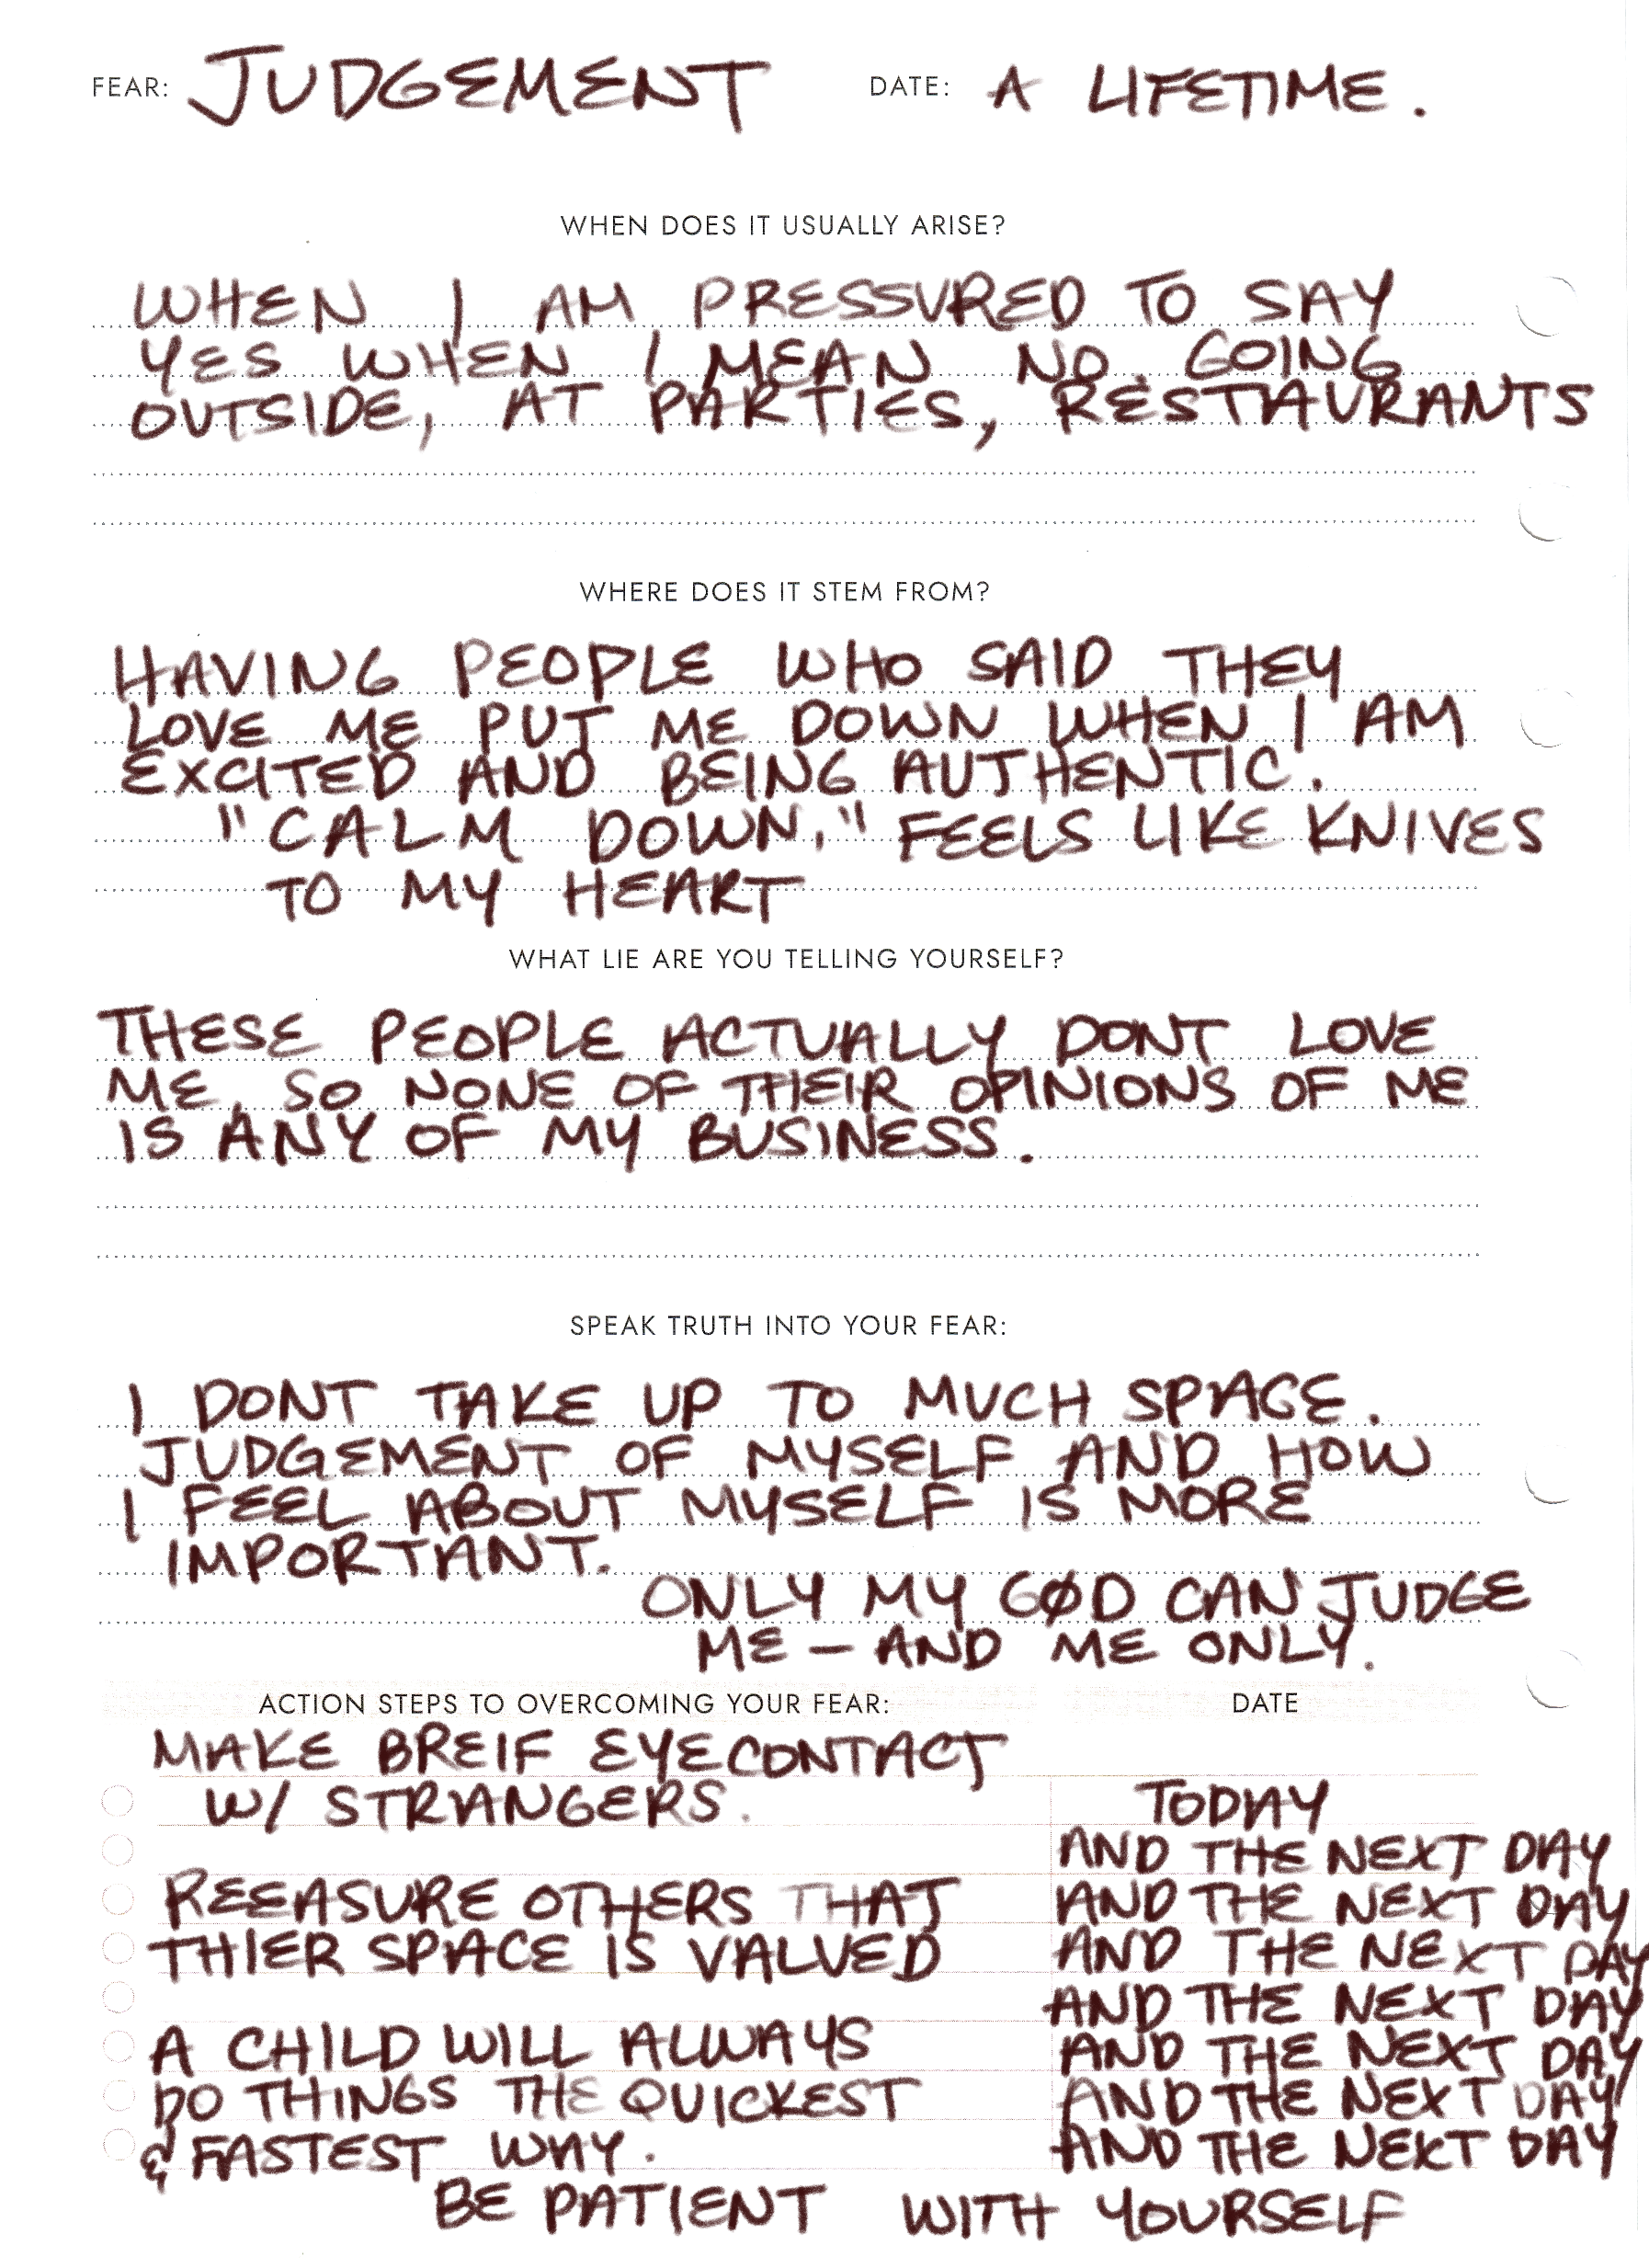 FEAR: JUDGEMENT DATE: A LIFETIME.
WHEN DOES IT USUALLY ARISE?
WHEN I AM PRESSURED TO SAY
YES WHEN I MEAN NO. GOING
OUTSIDE, AT PARTIES, RESTAURANTS
WHERE DOES IT STEM FROM?
HAVING PEOPLE WHO SAID THEY
LOVE ME PUT ME DOWN WHEN I AM
EXCITED AND BEING AUTHENTIC.
"CALM DOWN," FEELS LIKE KNIVES
TO MY HEART
WHAT LIE ARE YOU TELLING YOURSELF?
THESE PEOPLE ACTUALLY DONT LOVE
ME, SO NONE OF THEIR OPINIONS OF ME
IS ANY OF MY BUSINESS.
SPEAK TRUTH INTO YOUR FEAR:
I DONT TAKE UP TO MUCH SPACE.
JUDGEMENT OF MYSELF AND HOW
I FEEL ABOUT MYSELF IS MORE
IMPORTANT.
ONLY MY GØD CAN JUDGE
ME – AND ME ONLY.
ACTION STEPS TO OVERCOMING YOUR FEAR: DATE
MAKE BREIF EYECONTACT
W/ STRANGERS. TODAY
AND THE NEXT DAY
REEASURE OTHERS THAT AND THE NEXT DAY
THIER SPACE IS VALUED AND THE NEXT DAY
AND THE NEXT DAY
A CHILD WILL ALWAYS AND THE NEXT DAY
DO THINGS THE QUICKEST AND THE NEXT DAY
& FASTEST WAY. AND THE NEXT DAY
BE PATIENT WITH YOURSELF